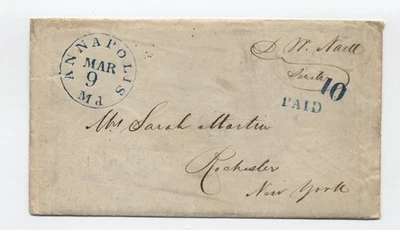 ANNAPOLIS Md
MAR
9
D. W. Naill
Senate
10
PAID
Mrs Sarah Martin
Rochester
New York